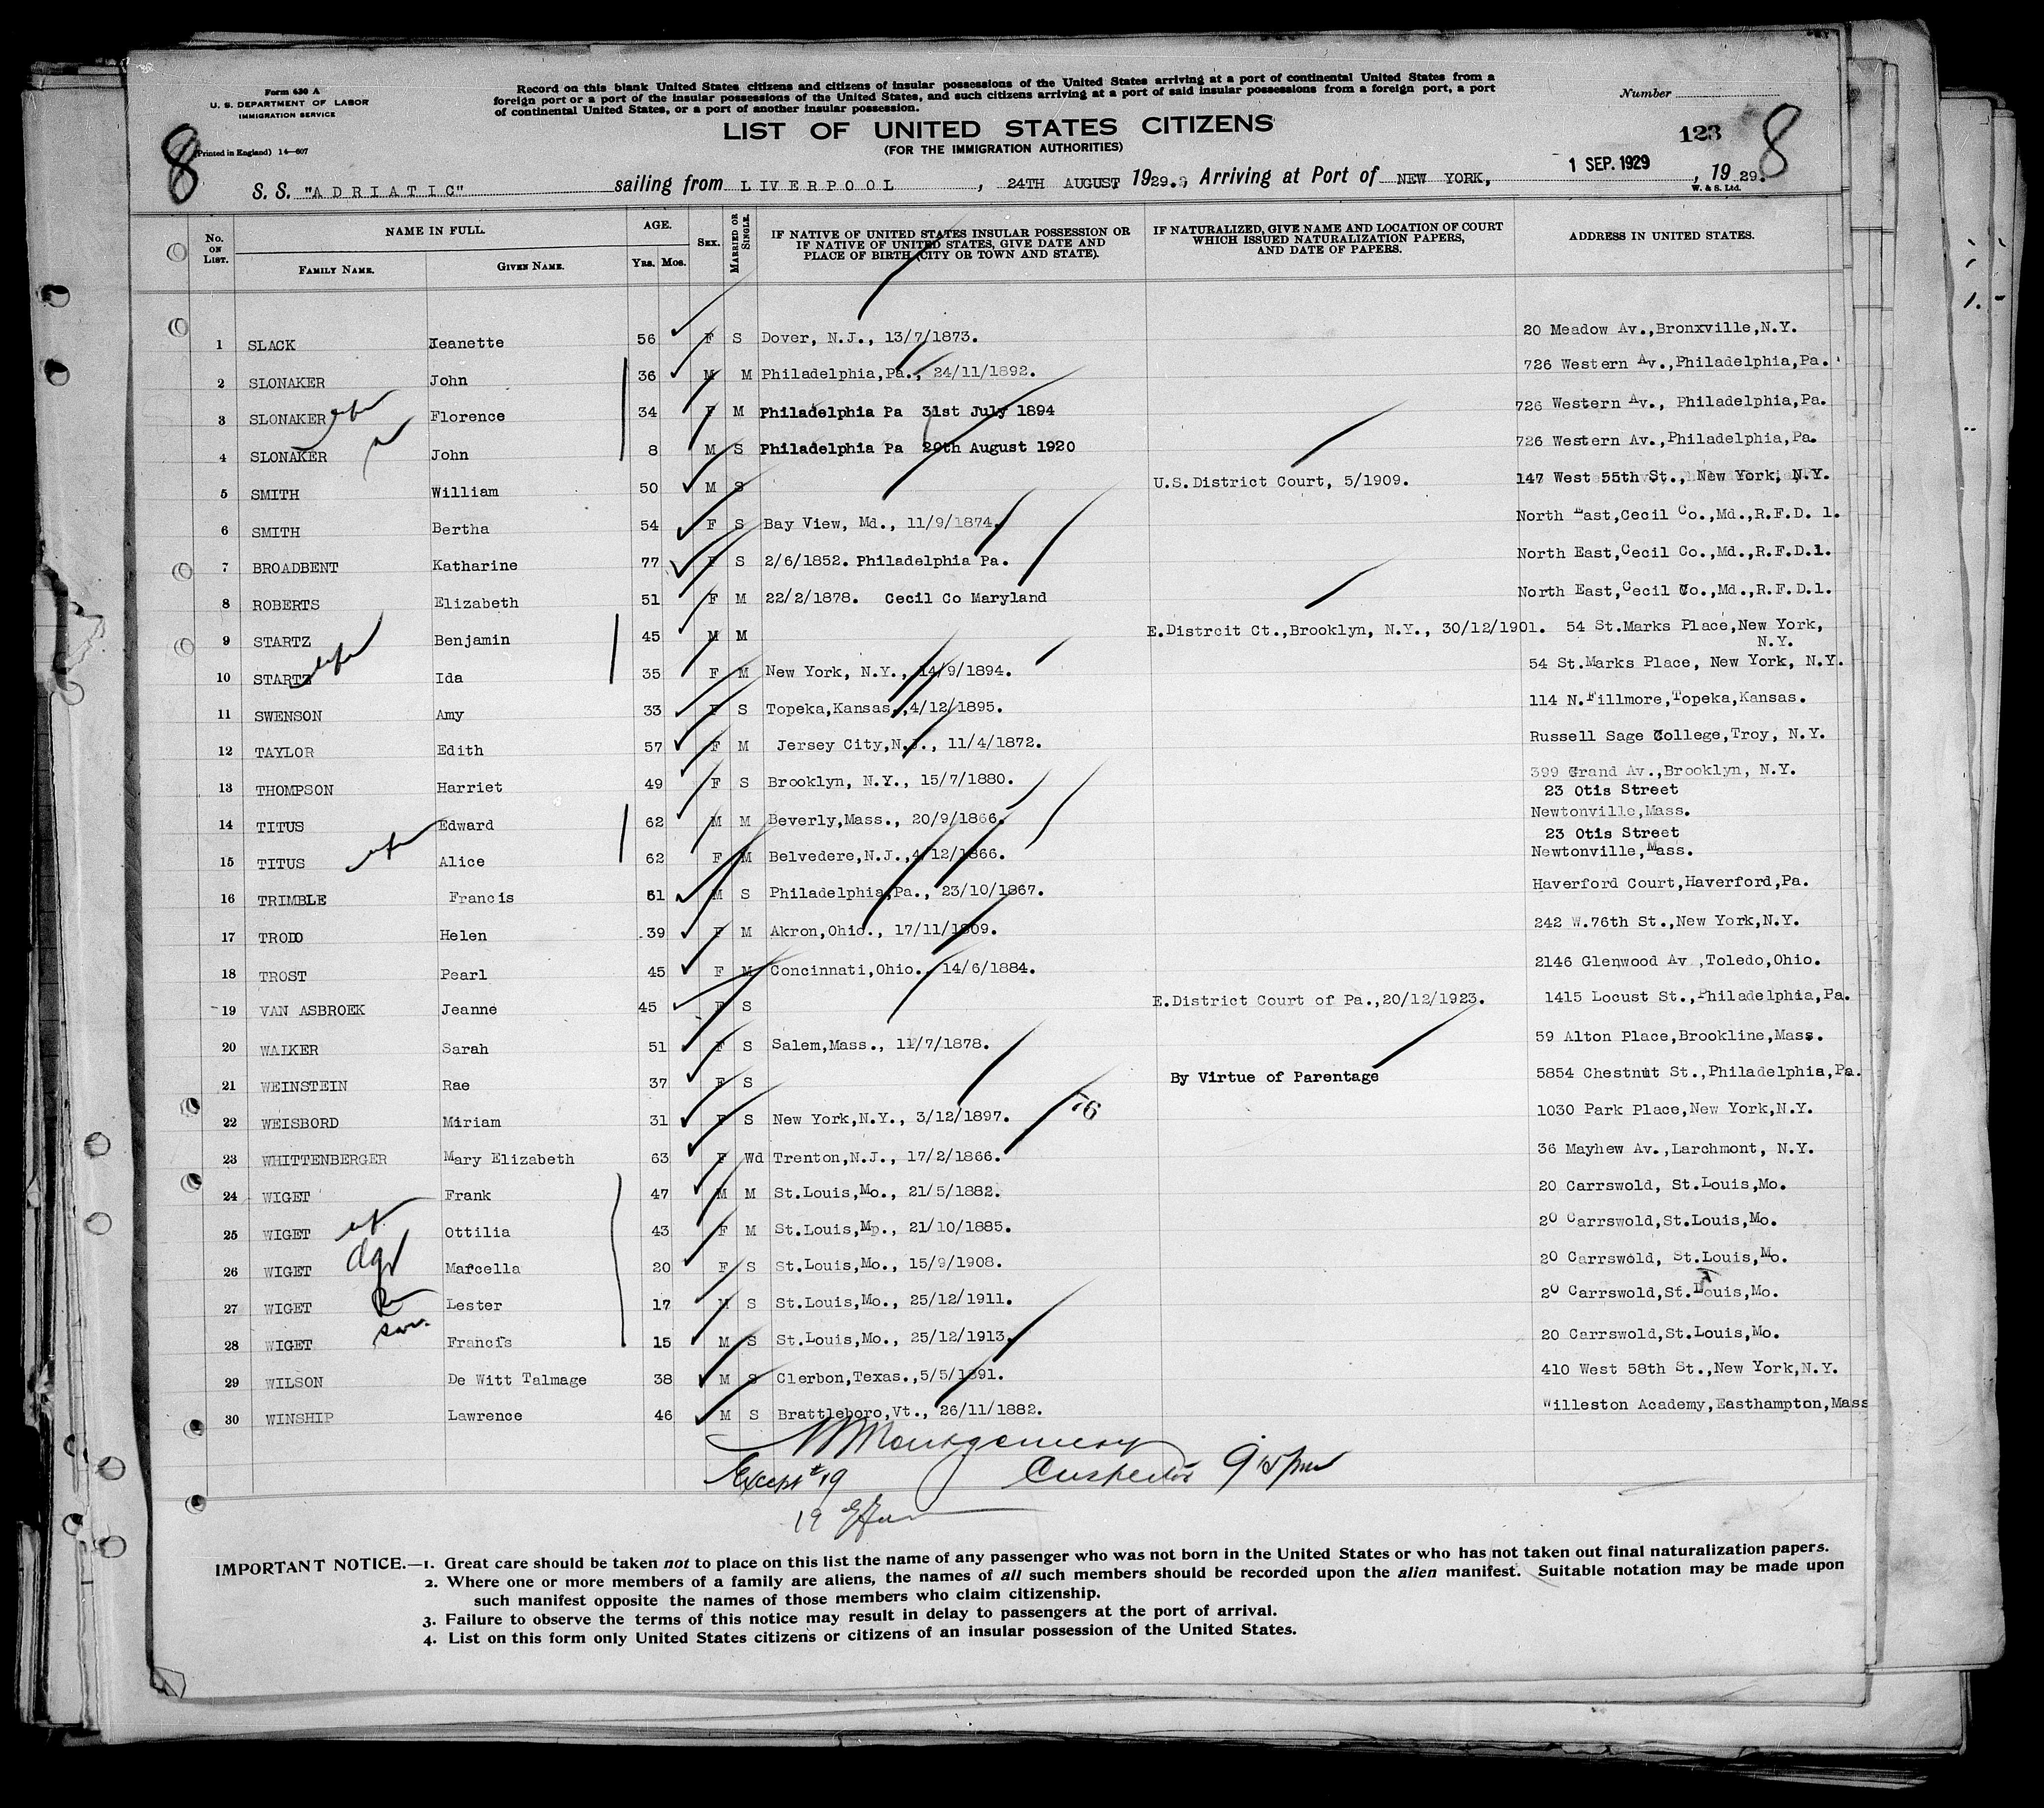 Form 630 A
U. S. DEPARTMENT OF LABOR
IMMIGRATION SERVICE
(Printed in England) 14—607
Record on this blank United States citizens and citizens of insular possessions of the United States arriving at a port of continental United States from a
foreign port or a port of the insular possessions of the United States, and such citizens arriving at a port of said insular possessions from a foreign port, a port
of continental United States, or a port of another insular possession.
Number
LIST OF UNITED STATES CITIZENS
(FOR THE IMMIGRATION AUTHORITIES)
123
8 8
S. S. "ADRIATIC" sailing from LIVERPOOL, 24TH AUGUST 1929., Arriving at Port of NEW YORK, 1 SEP. 1929, 1929.
W. & S. Ltd.
No. ON LIST. NAME IN FULL. FAMILY NAME. GIVEN NAME. AGE. YRS. MOS. SEX. MARRIED OR SINGLE. IF NATIVE OF UNITED STATES INSULAR POSSESSION OR IF NATIVE OF UNITED STATES, GIVE DATE AND PLACE OF BIRTH (CITY OR TOWN AND STATE). IF NATURALIZED, GIVE NAME AND LOCATION OF COURT WHICH ISSUED NATURALIZATION PAPERS, AND DATE OF PAPERS. ADDRESS IN UNITED STATES.
1 SLACK Jeanette 56 F S Dover, N.J., 13/7/1873. 20 Meadow Av.,Bronxville,N.Y.
2 SLONAKER John 36 M M Philadelphia,Pa., 24/11/1892. 726 Western Av.,Philadelphia,Pa.
3 SLONAKER wife Florence 34 F M Philadelphia Pa 31st July 1894 726 Western Av., Philadelphia,Pa.
4 SLONAKER John 8 M S Philadelphia Pa 20th August 1920 726 Western Av.,Philadelphia,Pa.
5 SMITH William 50 M S U.S.District Court, 5/1909. 147 West 55th St., New York, N.Y.
6 SMITH Bertha 54 F S Bay View, Md., 11/9/1874. North East,Cecil Co.,Md.,R.F.D. 1.
7 BROADBENT Katharine 77 F S 2/6/1852. Philadelphia Pa. North East,Cecil Co.,Md.,R.F.D.1.
8 ROBERTS Elizabeth 51 F M 22/2/1878. Cecil Co Maryland North East,Cecil Co.,Md.,R.F.D.1.
9 STARTZ Benjamin 45 M M E.Distrcit Ct.,Brooklyn, N.Y., 30/12/1901. 54 St.Marks Place,New York, N.Y.
10 STARTZ wife Ida 35 F M New York, N.Y., 14/9/1894. 54 St.Marks Place, New York, N.Y.
11 SWENSON Amy 33 F S Topeka,Kansas,,4/12/1895. 114 N.Fillmore,Topeka,Kansas.
12 TAYLOR Edith 57 F M Jersey City,N.J., 11/4/1872. Russell Sage College,Troy, N.Y.
13 THOMPSON Harriet 49 F S Brooklyn, N.Y., 15/7/1880. 399 Grand Av.,Brooklyn, N.Y.
23 Otis Street
14 TITUS Edward 62 M M Beverly,Mass., 20/9/1866. Newtonville,Mass.
23 Otis Street
15 TITUS wife Alice 62 F M Belvedere,N.J.,4/12/1866. Newtonville,Mass.
16 TRIMBLE Francis 61 M S Philadelphia,Pa., 23/10/1867. Haverford Court,Haverford,Pa.
17 Helen 39 F M Akron,Ohio., 17/11/1909. 242 W.76th St.,New York,N.Y.
18 TROST Pearl 45 F M Concinnati,Ohio., 14/6/1884. 2146 Glenwood Av ,Toledo,Ohio.
19 VAN ASBROEK Jeanne 45 F S E.District Court of Pa.,20/12/1923. 1415 Locust St.,Philadelphia,Pa.
20 WALKER Sarah 51 F S Salem,Mass., 11/7/1878. 59 Alton Place,Brookline,Mass.
21 WEINSTEIN Rae 37 F S By Virtue of Parentage 5854 Chestnut St.,Philadelphia,Pa.
22 WEISBORD Miriam 31 F S New York,N.Y., 3/12/1897. 76 1030 Park Place,New York,N.Y.
23 WHITTENBERGER Mary Elizabeth 63 F Wd Trenton,N.J., 17/2/1866. 36 Mayhew Av.,Larchmont, N.Y.
24 WIGET Frank 47 M M St.Louis,Mo., 21/5/1882. 20 Carrswold, St.Louis,Mo.
25 WIGET wife Ottilia 43 F M St.Louis,Mo., 21/10/1885. 20 Carrswold,St.Louis,Mo.
26 WIGET dgt Marcella 20 F S St.Louis,Mo., 15/9/1908. 20 Carrswold, St.Louis,Mo.
27 WIGET Lester 17 M S St.Louis,Mo., 25/12/1911. 20 Carrswold,St.Louis,Mo.
28 WIGET son Francis 15 M S St.Louis,Mo., 25/12/1913. 20 Carrswold,St.Louis,Mo.
29 WILSON De Witt Talmage 38 M S Clerbon,Texas.,5/5/1891. 410 West 58th St.,New York,N.Y.
30 WINSHIP Lawrence 46 M S Brattleboro,Vt., 26/11/1882. Willeston Academy,Easthampton,Mass
Montgomery
Except #19 Inspector 9
19
IMPORTANT NOTICE.—1. Great care should be taken not to place on this list the name of any passenger who was not born in the United States or who has not taken out final naturalization papers.
2. Where one or more members of a family are aliens, the names of all such members should be recorded upon the alien manifest. Suitable notation may be made upon
such manifest opposite the names of those members who claim citizenship.
3. Failure to observe the terms of this notice may result in delay to passengers at the port of arrival.
4. List on this form only United States citizens or citizens of an insular possession of the United States.